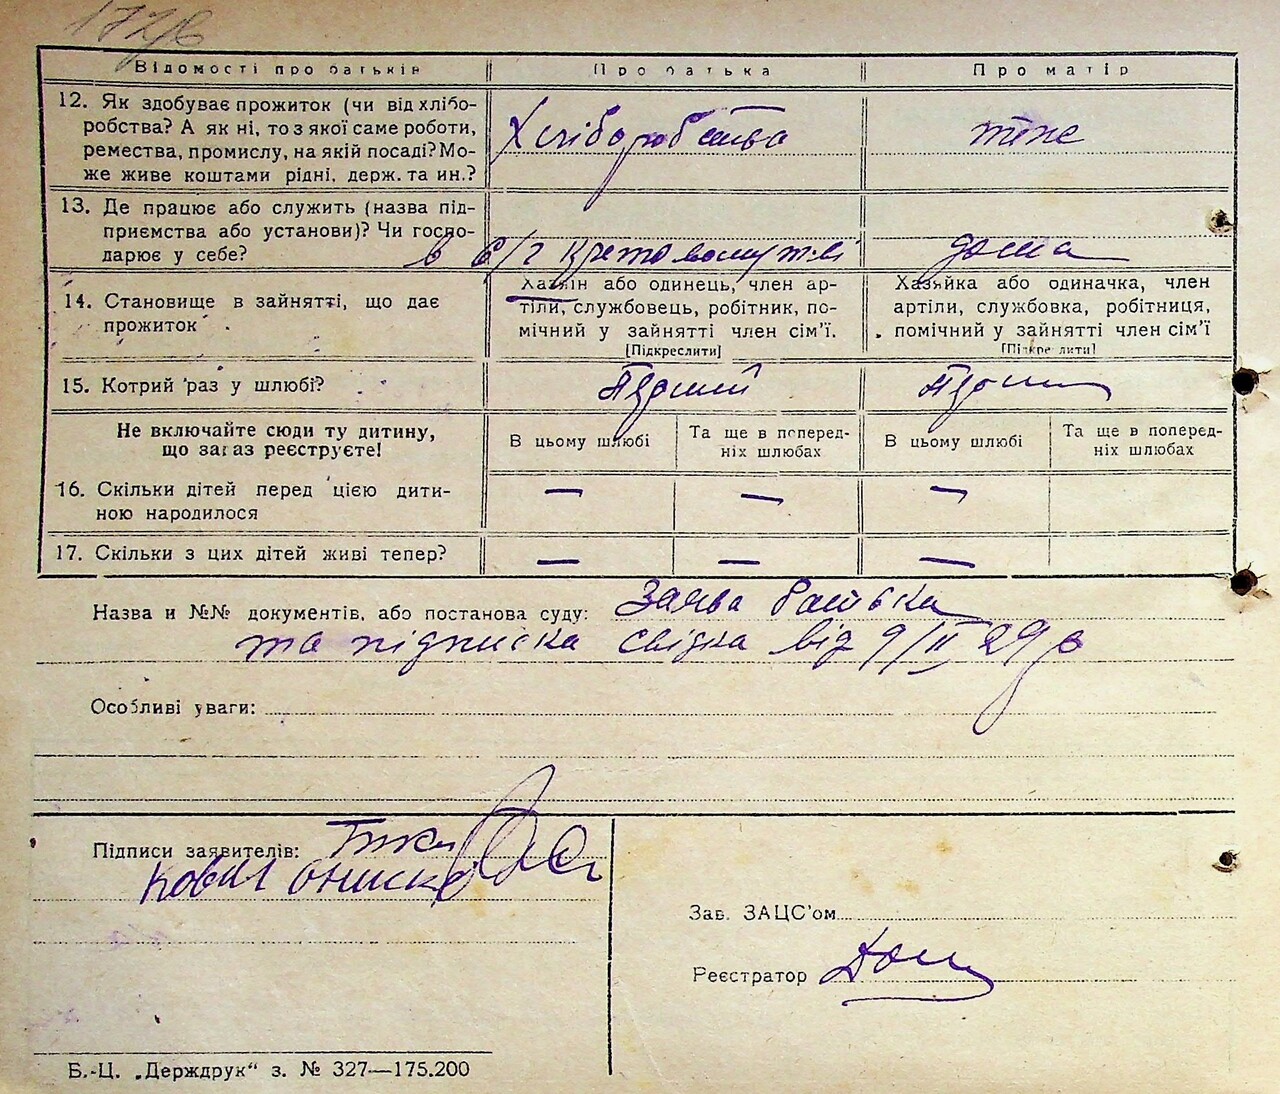 Відомості про батьків Про батька Про матір
12. Як здобуває прожиток (чи від хлібо-
робства? А як ні, то з якої саме роботи,
ремества, промислу, на якій посаді? Мо-
же живе коштами рідні, держ. та ин.?
Хліборобства теж
13. Де працює або служить (назва під-
приємства або установи)? Чи госпо-
дарює у себе?
в с/г дома
14. Становище в зайнятті, що дає
прожиток
Хазяїн або одинець, член ар-
тіли, службовець, робітник, по-
мічний у зайнятті член сім'ї.
[Підкреслити]
Хазяйка або одиначка, член
артіли, службовка, робітниця,
помічний у зайнятті член сім'ї
[Підкреслити]
15. Котрий раз у шлюбі?
Не включайте сюди ту дитину,
що зараз реєструєте!
В цьому шлюбі
Та ще в поперед-
ніх шлюбах
В цьому шлюбі
Та ще в поперед-
ніх шлюбах
16. Скільки дітей перед цією дити-
ною народилося
— — —
17. Скільки з цих дітей живі тепер?
— — —
Назва и №№ документів, або постанова суду: Заява батька
та підписка свідка від 9/II 29 р
Особливі уваги:
Підписи заявителів:
Зав. ЗАЦС'ом
Реєстратор
Б.-Ц. „Держдрук“ з. № 327—175.200